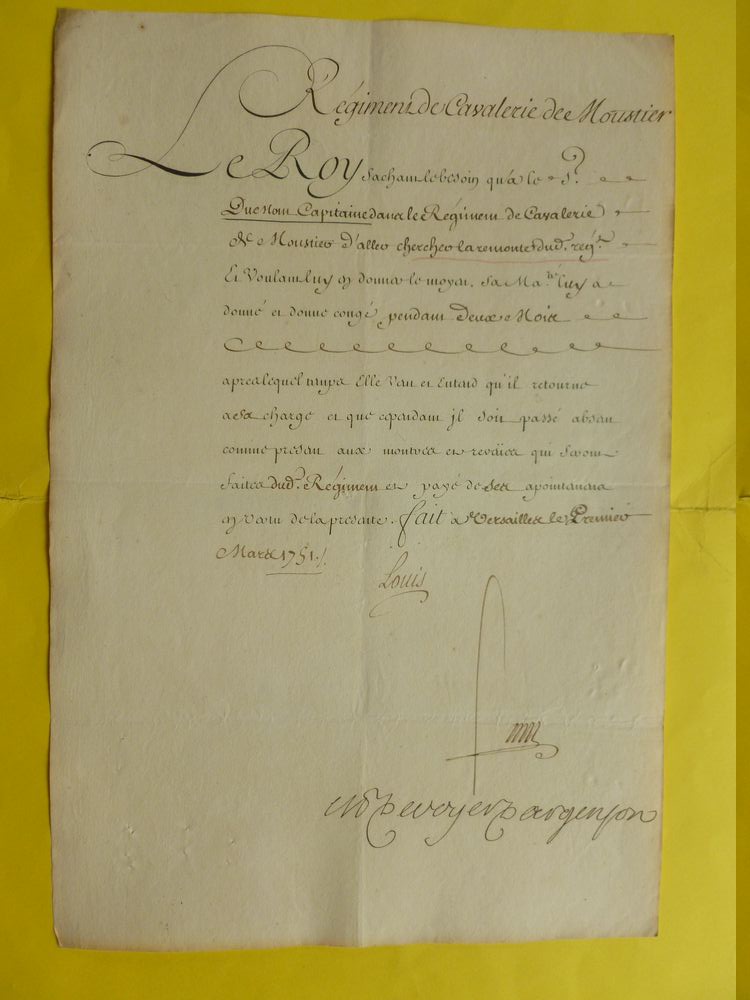 Régiment de Cavalerie de Moustier
Le Roy sachant le besoin qu'a le S.r
Ducnom Capitaine dans le Régiment de Cavalerie
de Moustier d'aller chercher la remonte dud. reg.t
Et Voulant luy en donner le moyen. Sa Ma.té luy a
donné et donne congé pendant Deux Mois
apres lequel temps Elle Veut et Entend qu'il retourne
a sa charge et que cependant jl soit passé absent
comme present aux montres et reveües qui seront
faites dud. Régiment et payé de ses apointemens
en vertu de la presente. fait a Versailles le Premier
Mars 1751./.
Louis
M P de voyer d'argenson